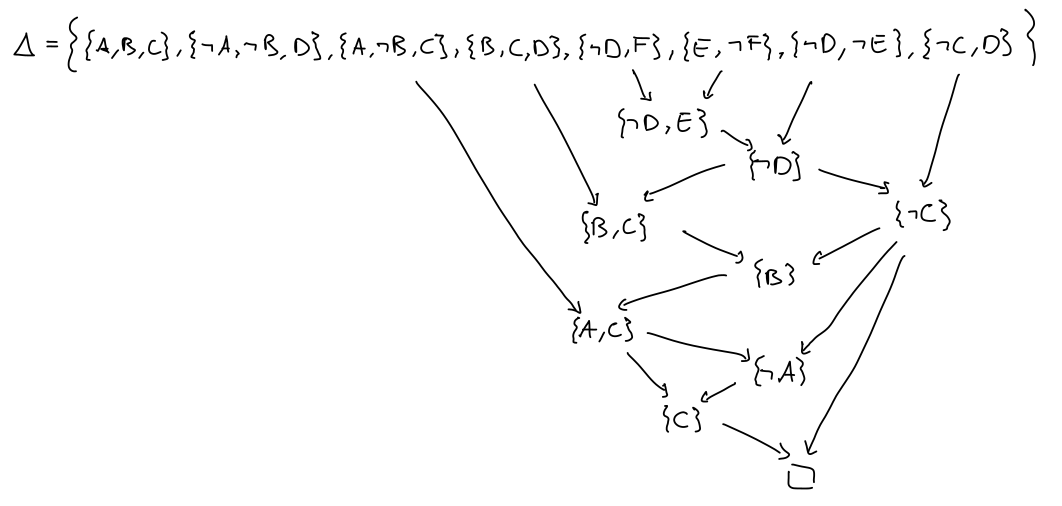 Δ = {{A,B,C},{¬A,¬B,D},{A,¬B,C},{B,C,D},{¬D,F},{E,¬F},{¬D,¬E},{¬C,D}}
{¬D,E}
{¬D}
{¬C}
{B,C}
{B}
{A,C}
{¬A}
{C}
□